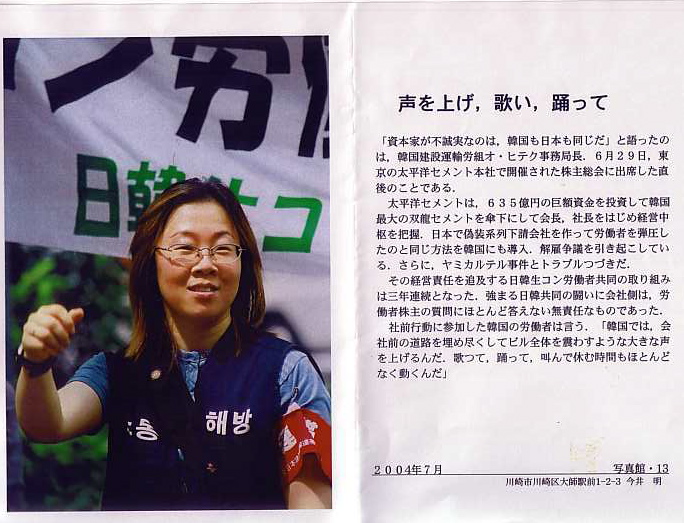 日韓
해방
声を上げ，歌い，踊って
「資本家が不誠実なのは，韓国も日本も同じだ」と語ったの
は，韓国建設運輸労組オ・ヒテク事務局長．６月２９日，東
京の太平洋セメント本社で開催された株主総会に出席した直
後のことである．
太平洋セメントは，６３５億円の巨額資金を投資して韓国
最大の双龍セメントを傘下にして会長，社長をはじめ経営中
枢を把握．日本で偽装系列下請会社を作って労働者を弾圧し
たのと同じ方法を韓国にも導入．解雇争議を引き起こしてい
る．さらに，ヤミカルテル事件とトラブルつづきだ．
その経営責任を追及する日韓生コン労働者共同の取り組み
は三年連続となった．強まる日韓共同の闘いに会社側は，労
働者株主の質問にほとんど答えない無責任なものであった．
社前行動に参加した韓国の労働者は言う．「韓国では，会
社前の道路を埋め尽くしてビル全体を震わすような大きな声
を上げるんだ．歌つて，踊って，叫んで休む時間もほとんど
なく動くんだ」
２００４年７月 写真館・13
川崎市川崎区大師駅前1-2-3 今井　明